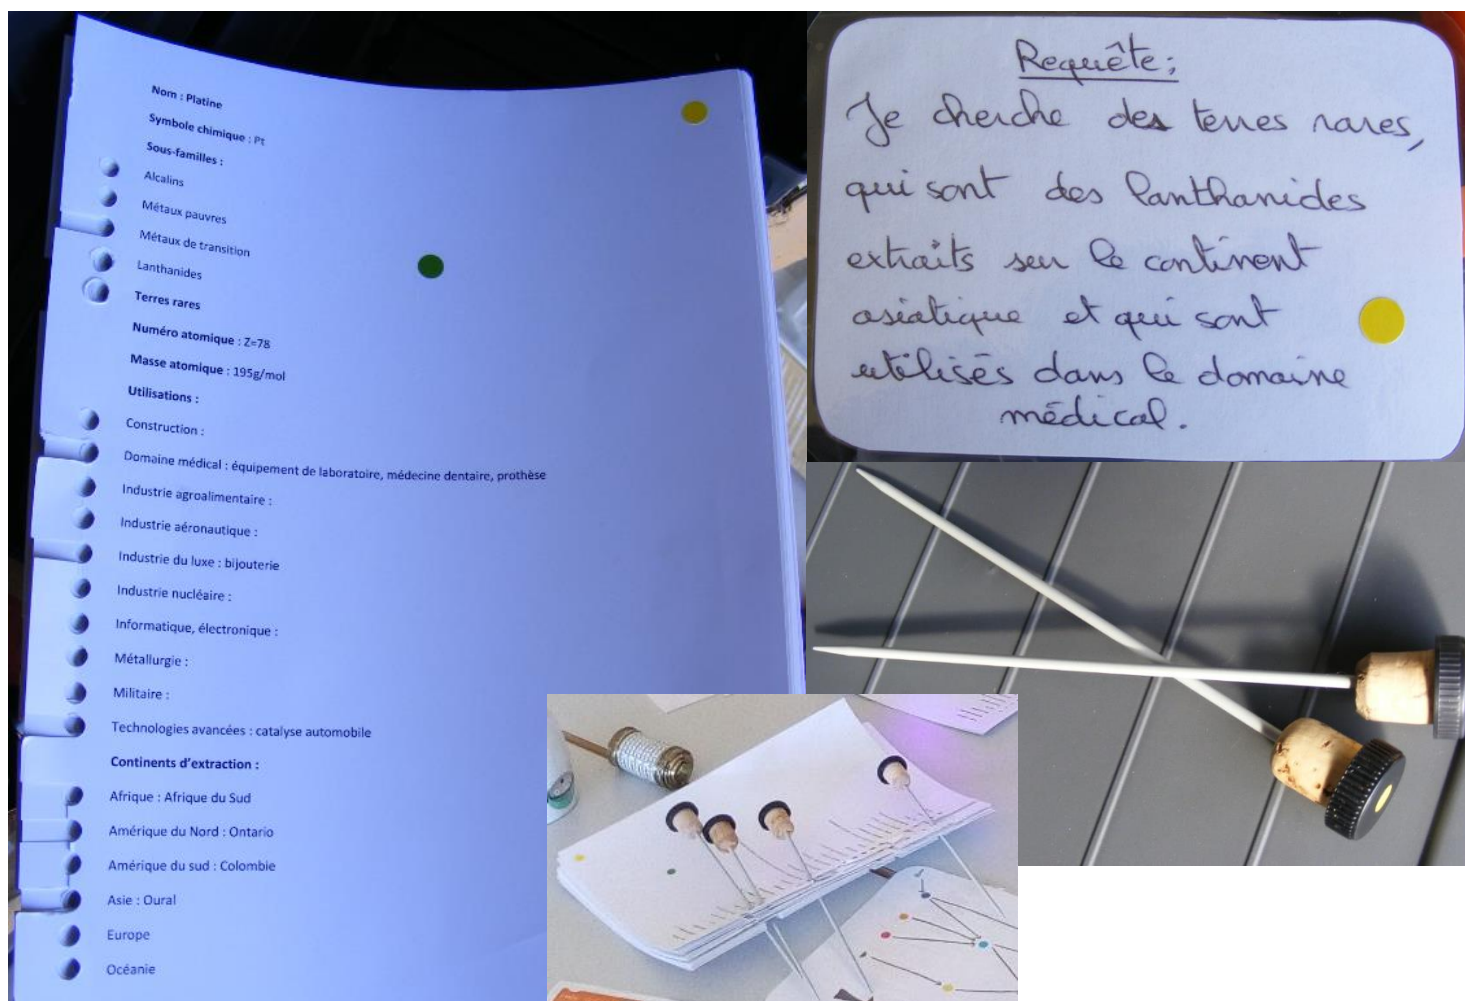 Nom : Platine
Symbole chimique : Pt
Sous-familles :
Alcalins
Métaux pauvres
Métaux de transition
Lanthanides
Terres rares
Numéro atomique : Z=78
Masse atomique : 195g/mol
Utilisations :
Construction :
Domaine médical : équipement de laboratoire, médecine dentaire, prothèse
Industrie agroalimentaire :
Industrie aéronautique :
Industrie du luxe : bijouterie
Industrie nucléaire :
Informatique, électronique :
Métallurgie :
Militaire :
Technologies avancées : catalyse automobile
Continents d'extraction :
Afrique : Afrique du Sud
Amérique du Nord : Ontario
Amérique du sud : Colombie
Asie : Oural
Europe
Océanie
Requête :
Je cherche des terres rares,
qui sont des lanthanides
extraits sur le continent
asiatique et qui sont
utilisés dans le domaine
médical.